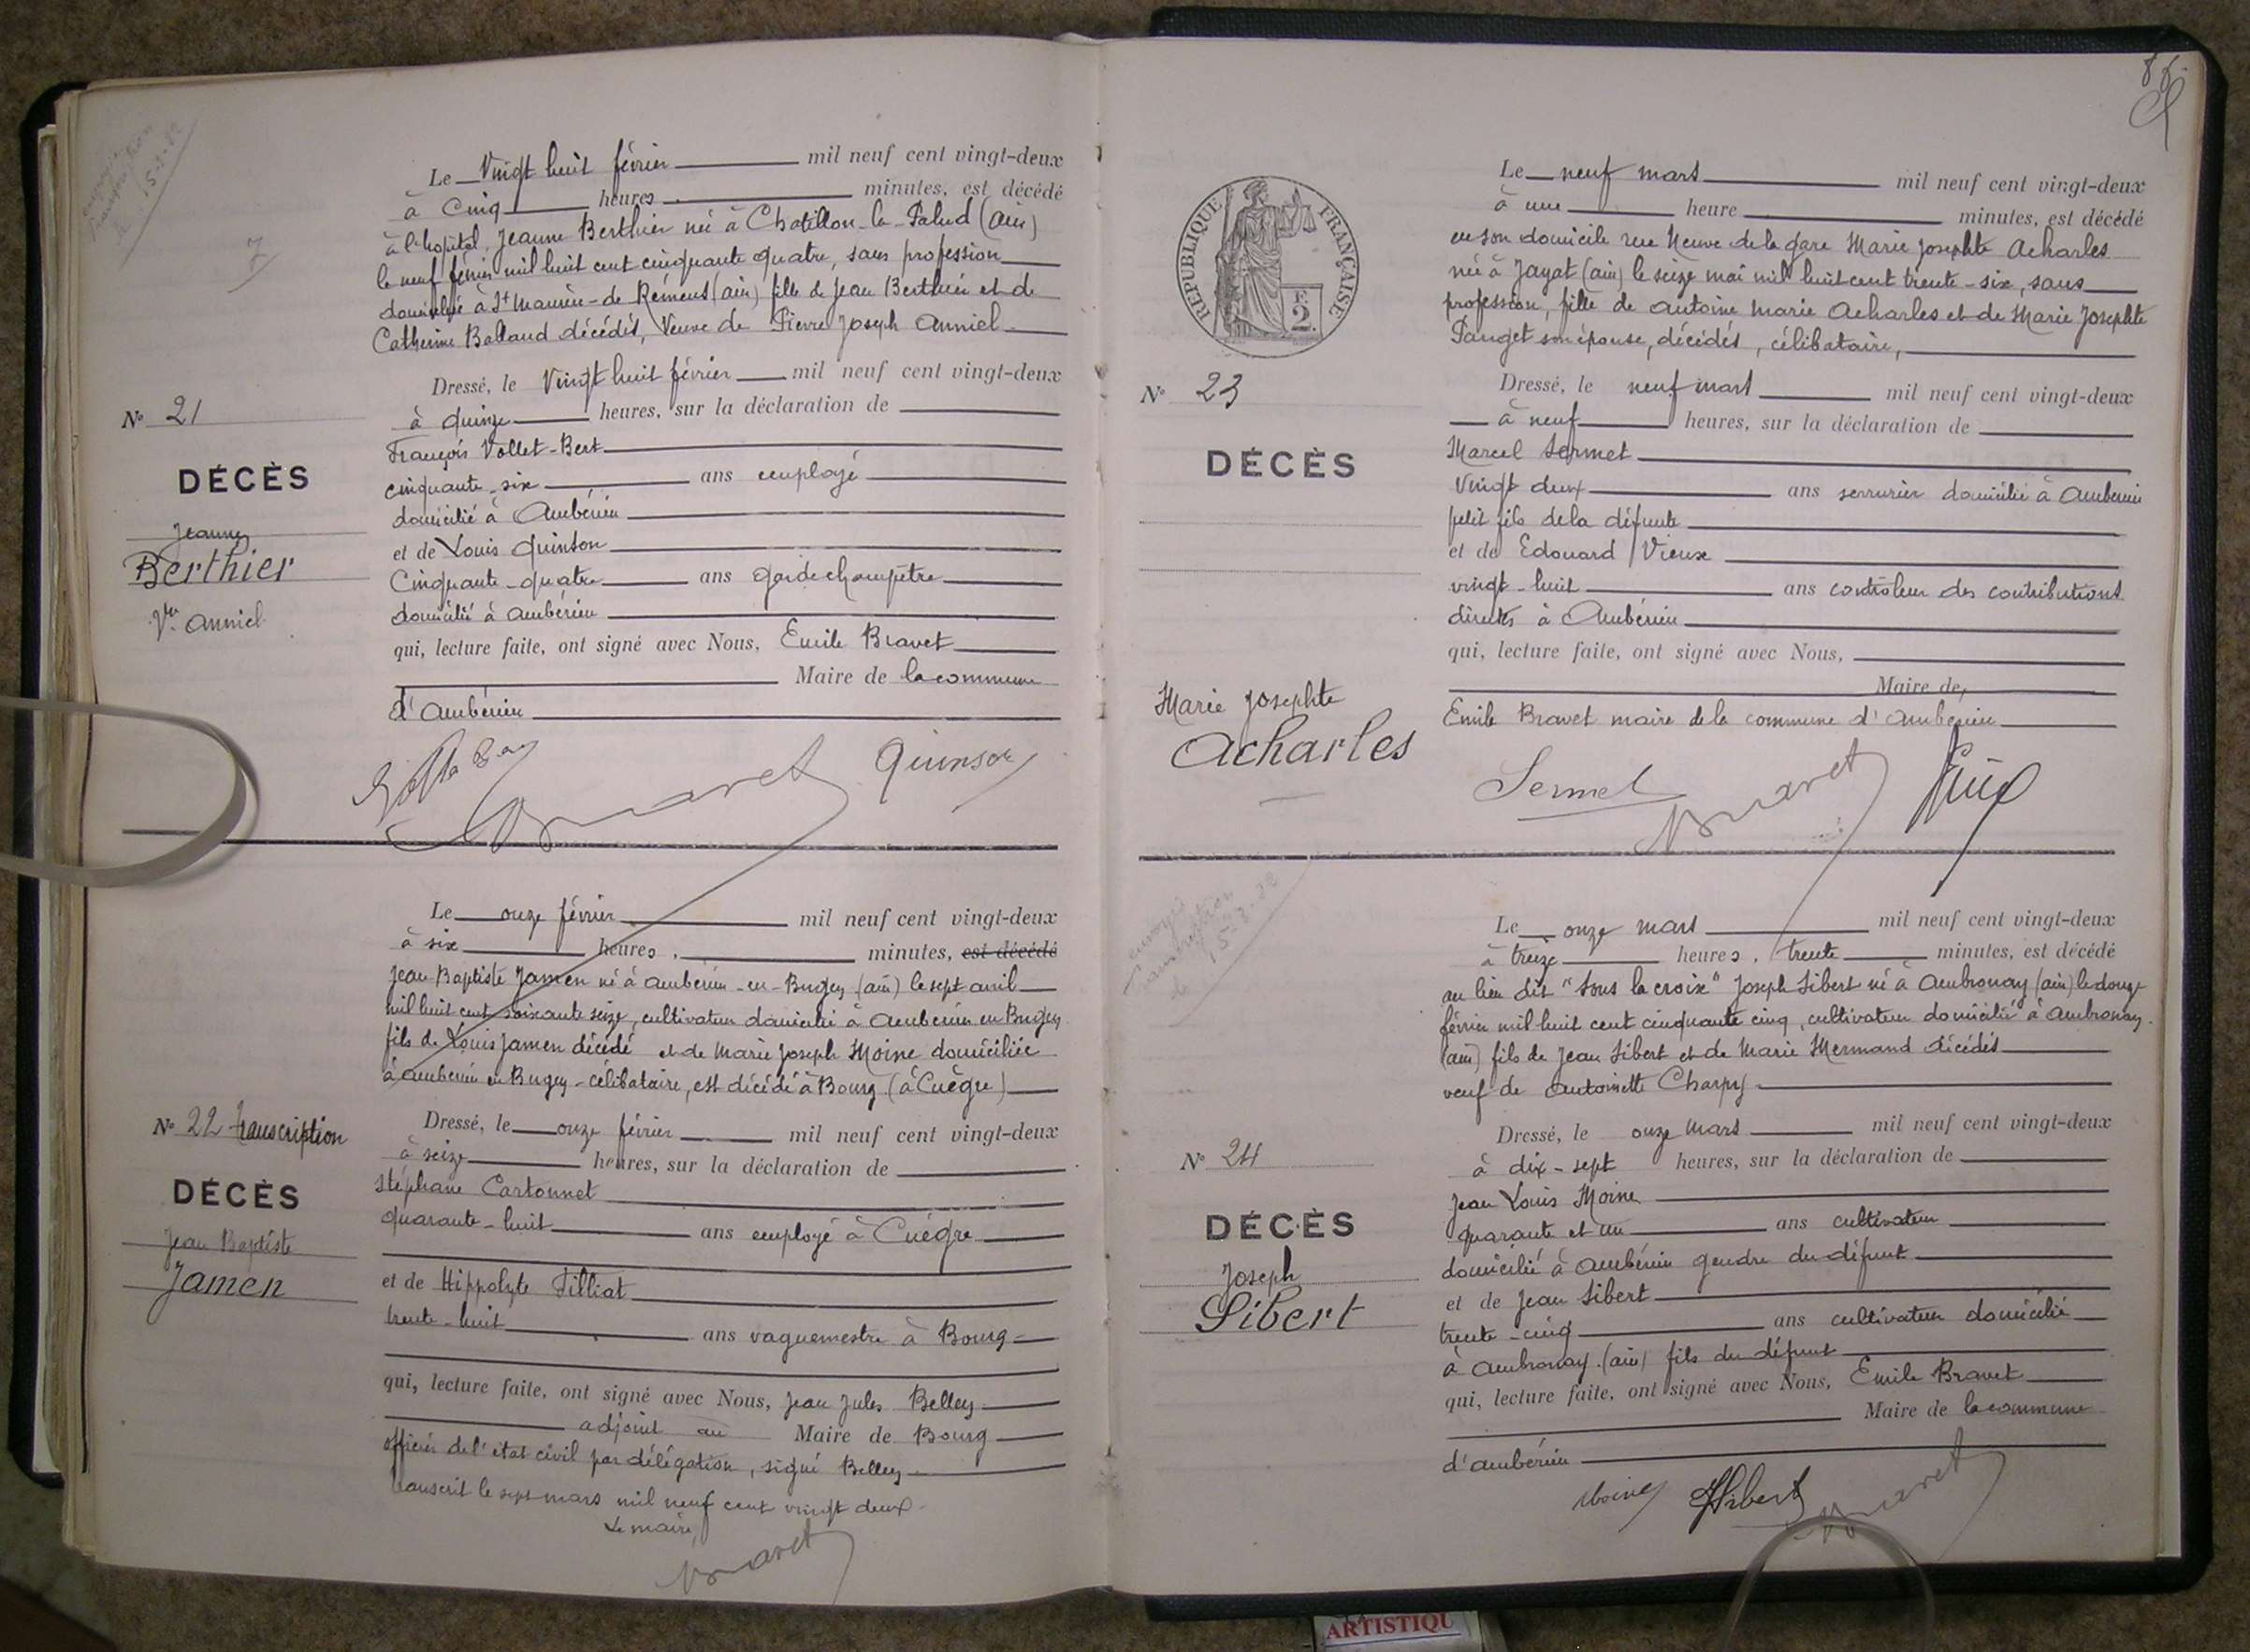 envoyé
transcription
le 15-2-22
7
Le Vingt huit février mil neuf cent vingt-deux
à Cinq heures minutes, est décédé
à l'hopital, Jeanne Berthier née à Chatillon-la-Palud (ain)
le neuf février mil huit cent cinquante quatre, sans profession
domiciliée à St Maurice-de Rémens (ain) fille de Jean Berthier et de
Catherine Balland décédés, Veuve de Pierre Joseph Anniel
Dressé, le Vingt huit février mil neuf cent vingt-deux
à quinze heures, sur la déclaration de
François Vollet-Bert
cinquante-six ans employé
domicilié à Ambérieu
et de Louis Quinson
Cinquante-quatre ans garde champêtre
domicilié à ambérieu
qui, lecture faite, ont signé avec Nous, Emile Bravet
Maire de la commune
d'Ambérieu
N° 21
DÉCÈS
Jeanne
Berthier
Vve Anniel
Bravet Quinson
Le onze février mil neuf cent vingt-deux
à six heures, minutes, est décédé
Jean Baptiste Jamen né à ambérieu-en-Bugey (ain) le sept avril
mil huit cent soixante seize, cultivateur domicilié à Ambérieu en Bugey
fils de Louis Jamen décédé et de Marie Joseph Moine domiciliée
à ambérieu en Bugey-célibataire, est décédé à Bourg (à Cuègre)
Dressé, le onze février mil neuf cent vingt-deux
à seize heures, sur la déclaration de
Stéphane Cartonnet
quarante-huit ans employé à Cuègre
et de Hippolyte Tilliat
trente-huit ans vaguemestre à Bourg
qui, lecture faite, ont signé avec Nous, Jean Jules Belley
adjoint au Maire de Bourg
officier de l'état civil par délégation, signé Belley
transcrit le sept mars mil neuf cent vingt deux
Le maire,
Bravet
N° 22 transcription
DÉCÈS
Jean Baptiste
Jamen
RÉPUBLIQUE FRANÇAISE
2
Le neuf mars mil neuf cent vingt-deux
à une heure minutes, est décédé
en son domicile rue Neuve de la gare Marie Josephte Acharles
née à Jayat (ain) le seize mai mil huit cent trente-six, sans
profession, fille de Antoine Marie Acharles et de Marie Josephte
Pauget son épouse, décédés, célibataire,
Dressé, le neuf mars mil neuf cent vingt-deux
à neuf heures, sur la déclaration de
Marcel Sermet
Vingt deux ans serrurier domicilié à Ambérieu
petit fils de la défunte
et de Edouard Vieux
vingt-huit ans contrôleur des contributions
directes à Ambérieu
qui, lecture faite, ont signé avec Nous,
Maire de,
Emile Bravet maire de la commune d'Ambérieu
N° 23
DÉCÈS
Marie Josephte
Acharles
Sermet Bravet
envoyé
transcription
le 15-2-22
Le onze mars mil neuf cent vingt-deux
à treize heures, trente minutes, est décédé
au lieu dit "Sous la croix" Joseph Sibert né à Ambronay (ain) le douze
février mil huit cent cinquante cinq, cultivateur domicilié à Ambronay
(ain) fils de Jean Sibert et de Marie Mermand décédés
veuf de Antoinette Charpy
Dressé, le onze mars mil neuf cent vingt-deux
à dix-sept heures, sur la déclaration de
Jean Louis Moine
quarante et un ans cultivateur
domicilié à Ambérieu gendre du défunt
et de Jean Sibert
trente-cinq ans cultivateur domicilié
à Ambronay (ain) fils du défunt
qui, lecture faite, ont signé avec Nous, Emile Bravet
Maire de la commune
d'ambérieu
N° 24
DÉCÈS
Joseph
Sibert
Moine Sibert Bravet
ARTISTIQU